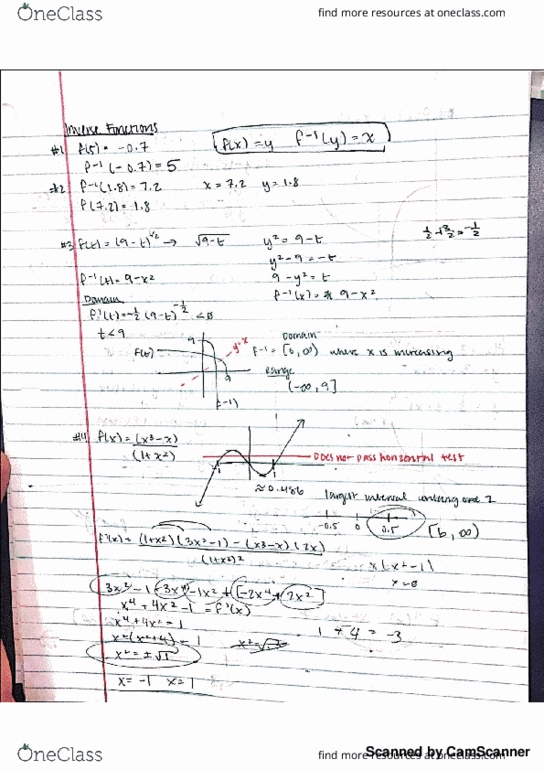 OneClass
find more resources at oneclass.com
Inverse Functions
#1 f(5) = -0.7
f(x) = y f⁻¹(y) = x
f⁻¹(-0.7) = 5
#2 f⁻¹(1.8) = 7.2 x = 7.2 y = 1.8
f(7.2) = 1.8
#3 f(t) = (9-t)^1/2 → √9-t y² = 9-t
y² - 9 = -t
f⁻¹(x) = 9-x² 9-y² = t
f⁻¹(x) = 9-x²
Domain
f'(t) = -1/2 (9-t)^-1/2 < 0
t < 9
Domain
f⁻¹ = [0, ∞) where x is increasing
f(t) 9 y=x
Range
9
(-∞, 9]
f(x) = (x³-x)
(1+x²)
Does not pass horizontal test
≈0.486
largest interval
-0.5 0 0.5 [b, ∞)
f'(x) = (1+x²)(3x²-1) - (x³-x)(2x)
(1+x²)²
x(x²-1)
x=0
x⁴ + 4x² - 1 = f'(x)
x⁴ + 4x² = 1
x²(x²+4) = 1
x² = ±√1
x = -1 x = 1
OneClass
find more resources at oneclass.com
Scanned by CamScanner